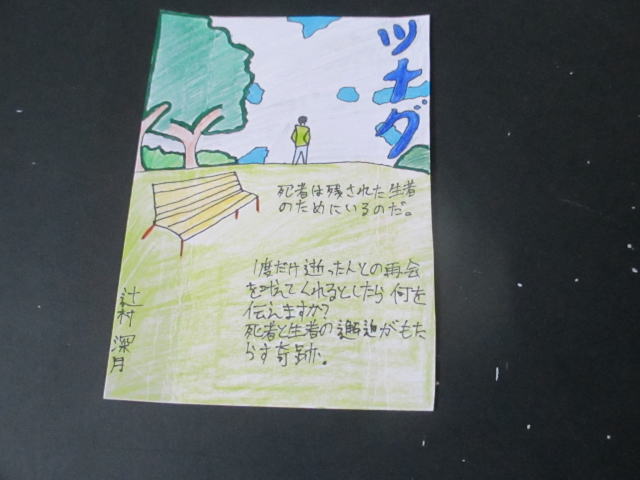 ツナグ
死者は残された生者
のためにいるのだ。
1度だけ逝った人との再会
を叶えてくれるとしたら何を
伝えますか?
死者と生者の邂逅がもた
らす奇跡。
辻村
深月